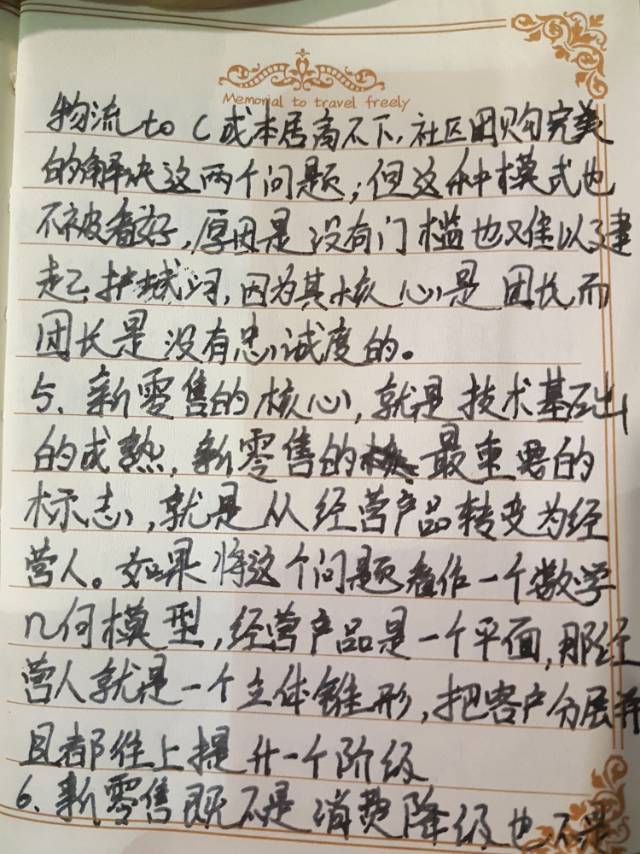 Memorial to travel freely
物流to C成本居高不下,社区团购完美
的解决这两个问题;但这种模式也
不被看好,原因是没有门槛也难以建
起护城河,因为其核心是团长而
团长是没有忠诚度的。
5、新零售的核心,就是技术基础
的成熟,新零售的最重要的
标志,就是从经营产品转变为经
营人。如果将这个问题看作一个数学
几何模型,经营产品是一个平面,那经
营人就是一个立体锥形,把客户分层并
且都往上提升一个阶级
6、新零售既不是消费降级也不是